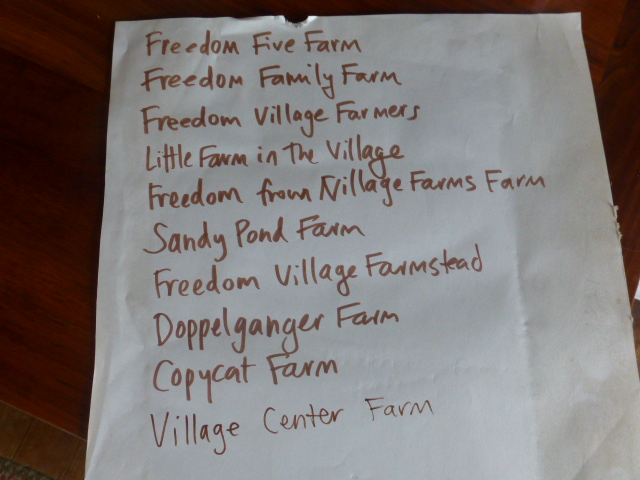 Freedom Five Farm
Freedom Family Farm
Freedom Village Farmers
Little Farm in the Village
Freedom from Nillage Farms Farm
Sandy Pond Farm
Freedom Village Farmstead
Doppelganger Farm
Copycat Farm
Village Center Farm